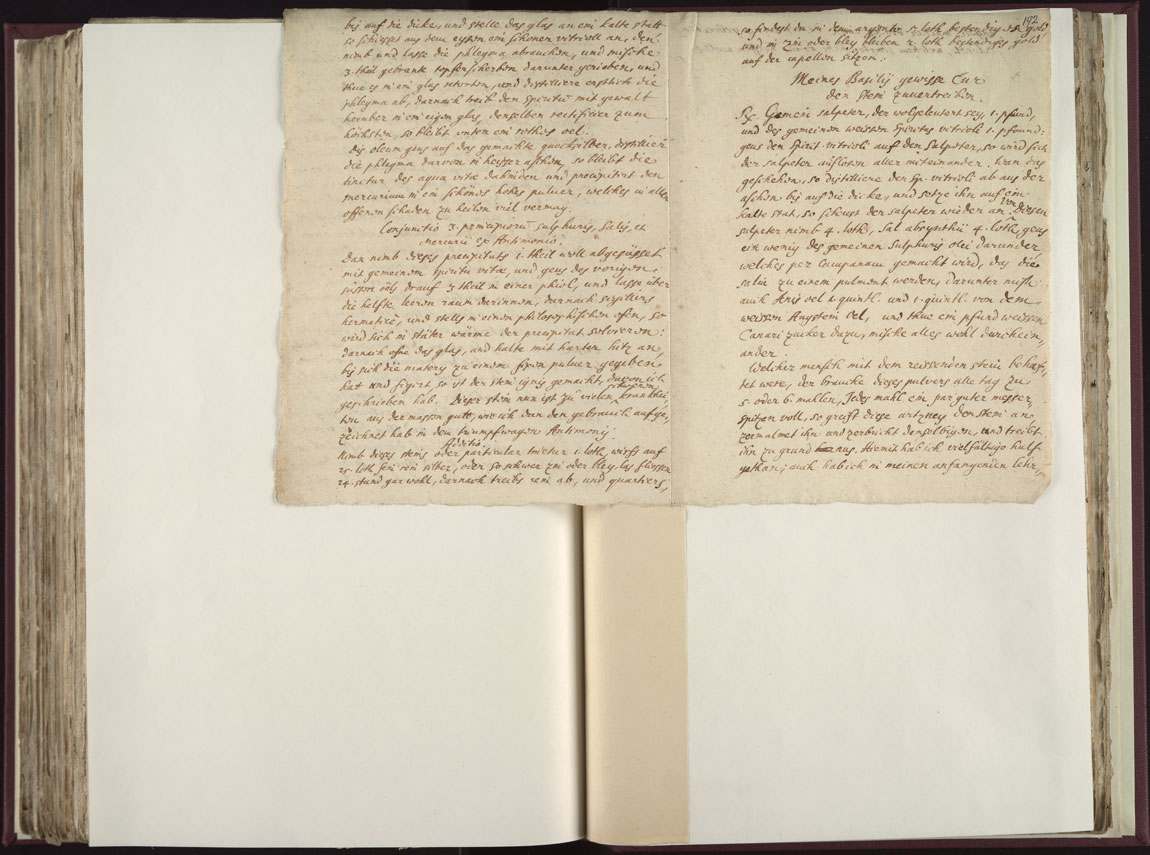 bis auf die dicke, und stelle das glas an ein kalte statt
so schiesset aus dem eysen ein schoner vitrioll an, den
nimb und lasse die phlegma abrauchen, und mische
3. theil gebrante topferscherben darunter gerieben, und
thue es in ein glas retorten, und distilliere erstlich die
phlegma ab, darnach treib den spiritum mit gewalt
heruber in ein eigen glas, denselben rectificier zum
höchsten, so bleibt unten ein rothes oel.
Dis oleum geus auf das gemachte quecksilber, distillier
die phlegma darvon in heisser aschen, so bleibt die
tinctur des aqua vitæ dahinden und præcipitirt den
mercurium in ein schönes hohes pulver, welches in allen
offenen schaden zu heilen viel vermag.
Conjunctio 3. principiorum sulphuris, salis, et
mercurii ex Antimonio.
Dan nimb dieses præcipitats 1. theil woll abgesüsset
mit gemeinem spiritu vitæ, und geus des vorigen
süssen öels drauf 3 theil in einer phiol, und lasse über
die helfte leeren raum darinnen, darnach sigillirs
hermeticè, und stells in einen philosophischen ofen, so
wird sich in stäter wärme der præcipitat solveren:
darnach ofne das glas, und halte mit harter hitz an
bis sich die matery zu einem fixen pulver gegeben
hat und figirt so ist der stein ignis gemacht, davon ich
geschrieben hab. Dieser stein nun ist zu vielen schweren krankhei,
ten aus der massen gutt, wie ich dan den gebrauch aufge,
zeichnet hab in dem triumpfwagen Antimonij.
Additio.
Nimb dieses steins oder particular tinctur 1. loth, wirfs auf
25. loth fein rein silber, oder so schwer zin oder bley, las fliessen
24. stund gar wohl, darnach treibs rein ab, und quartiers,
192
so findest du in dem argento 5. loth bestendig gold
und in zin oder bley bleiben 2. loth bestendiges gold
auf der capellen sitzen.
Meines Basilij gewisse Cur
den stein zuvertreiben.
Rx. Gemein salpeter, der wolgeleutert sey, 1. pfund,
und des gemeinen weissen spiritus vitrioli 1. pfound:
geus den spirit vitrioli auf den salpeter, so wird sich
der salpeter auflosen aller miteinander. wan das
geschehen, so distilliere den sp. vitrioli ab aus der
aschen bis auf die dicke, und setze ihn auf ein
kalte stat, so scheust der salpeter wieder an. Von Diesen
salpeter nimb 4. loth, sal absynthii 4. loth, geus
ein wenig des gemeinen sulphuris olei darunder
welches per Campanam gemacht wird, das die
salia zu einem pulment werden, darunter misch
auch Anis oel 1. quintl. und 1. quintl. von dem
weissen Augstein oel, und thue ein pfund weissen
Canari zucker dazu, mische alles wohl durchein,
ander.
Welcher mensch mit dem reissenden stein behaf,
tet were, der brauche dieses pulvers alle tag zu
5. oder 6. mahlen, Jedes mahl ein par guter messer,
spitzen voll, so greift diese artzney den stein an
zermalmet ihn und zerbricht denselbigen, und treibt
ihn zu grund aus. Hiemit hab ich vielfältige hulf
gethan; auch hab ich in meinen anfangenten lehr,